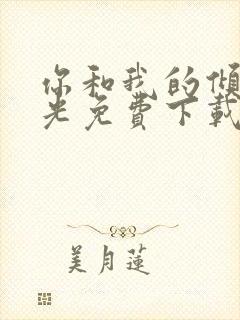 你和我的倾
光免费下载
美月莲